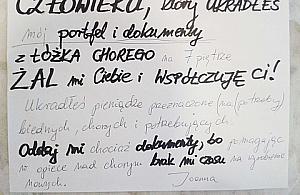 CZŁOWIEKU, który UKRADŁEŚ
mój portfel i dokumenty
z ŁÓŻKA CHOREGO na 7 piętrze
ŻAL mi Ciebie i WSPÓŁCZUJĘ CI!
Ukradłeś pieniądze przeznaczone na (potrzeby)
biednych, chorych i potrzebujących.
Oddaj mi chociaż dokumenty, bo pomagając
w opiece nad chorym brak mi czasu na wyrobienie
nowych. Joanna